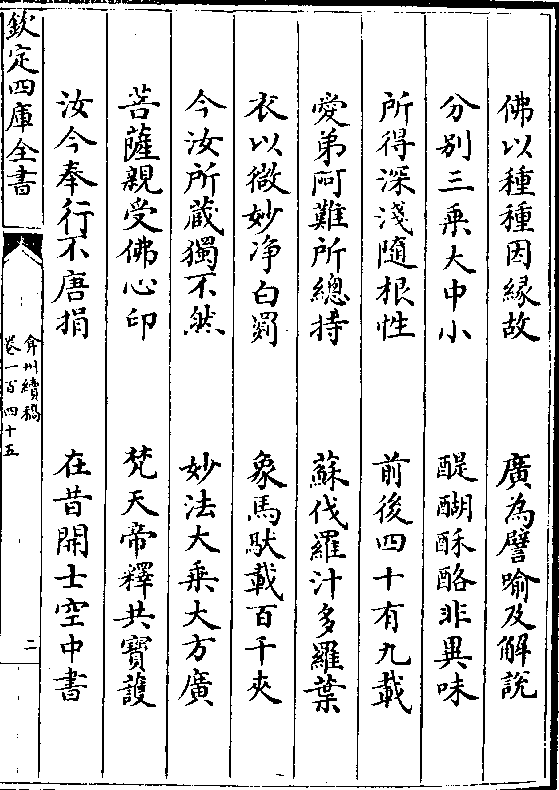 佛以種種因緣故　廣為譬喻及解説
分别三乗大中小　醍醐酥酪非異味
所得深淺隨根性　前後四十有九載
愛弟阿難所總持　蘇伐羅汁多羅葉
衣以微妙净白㲲　象馬馱載百千夾
今汝所蔵獨不然　妙法大乗大方廣
菩薩親受佛心印　梵天帝釋共寶護
汝今奉行不唐捐　在昔開士空中書
欽定四庫全書
弇州續稿
卷一百四十五
二